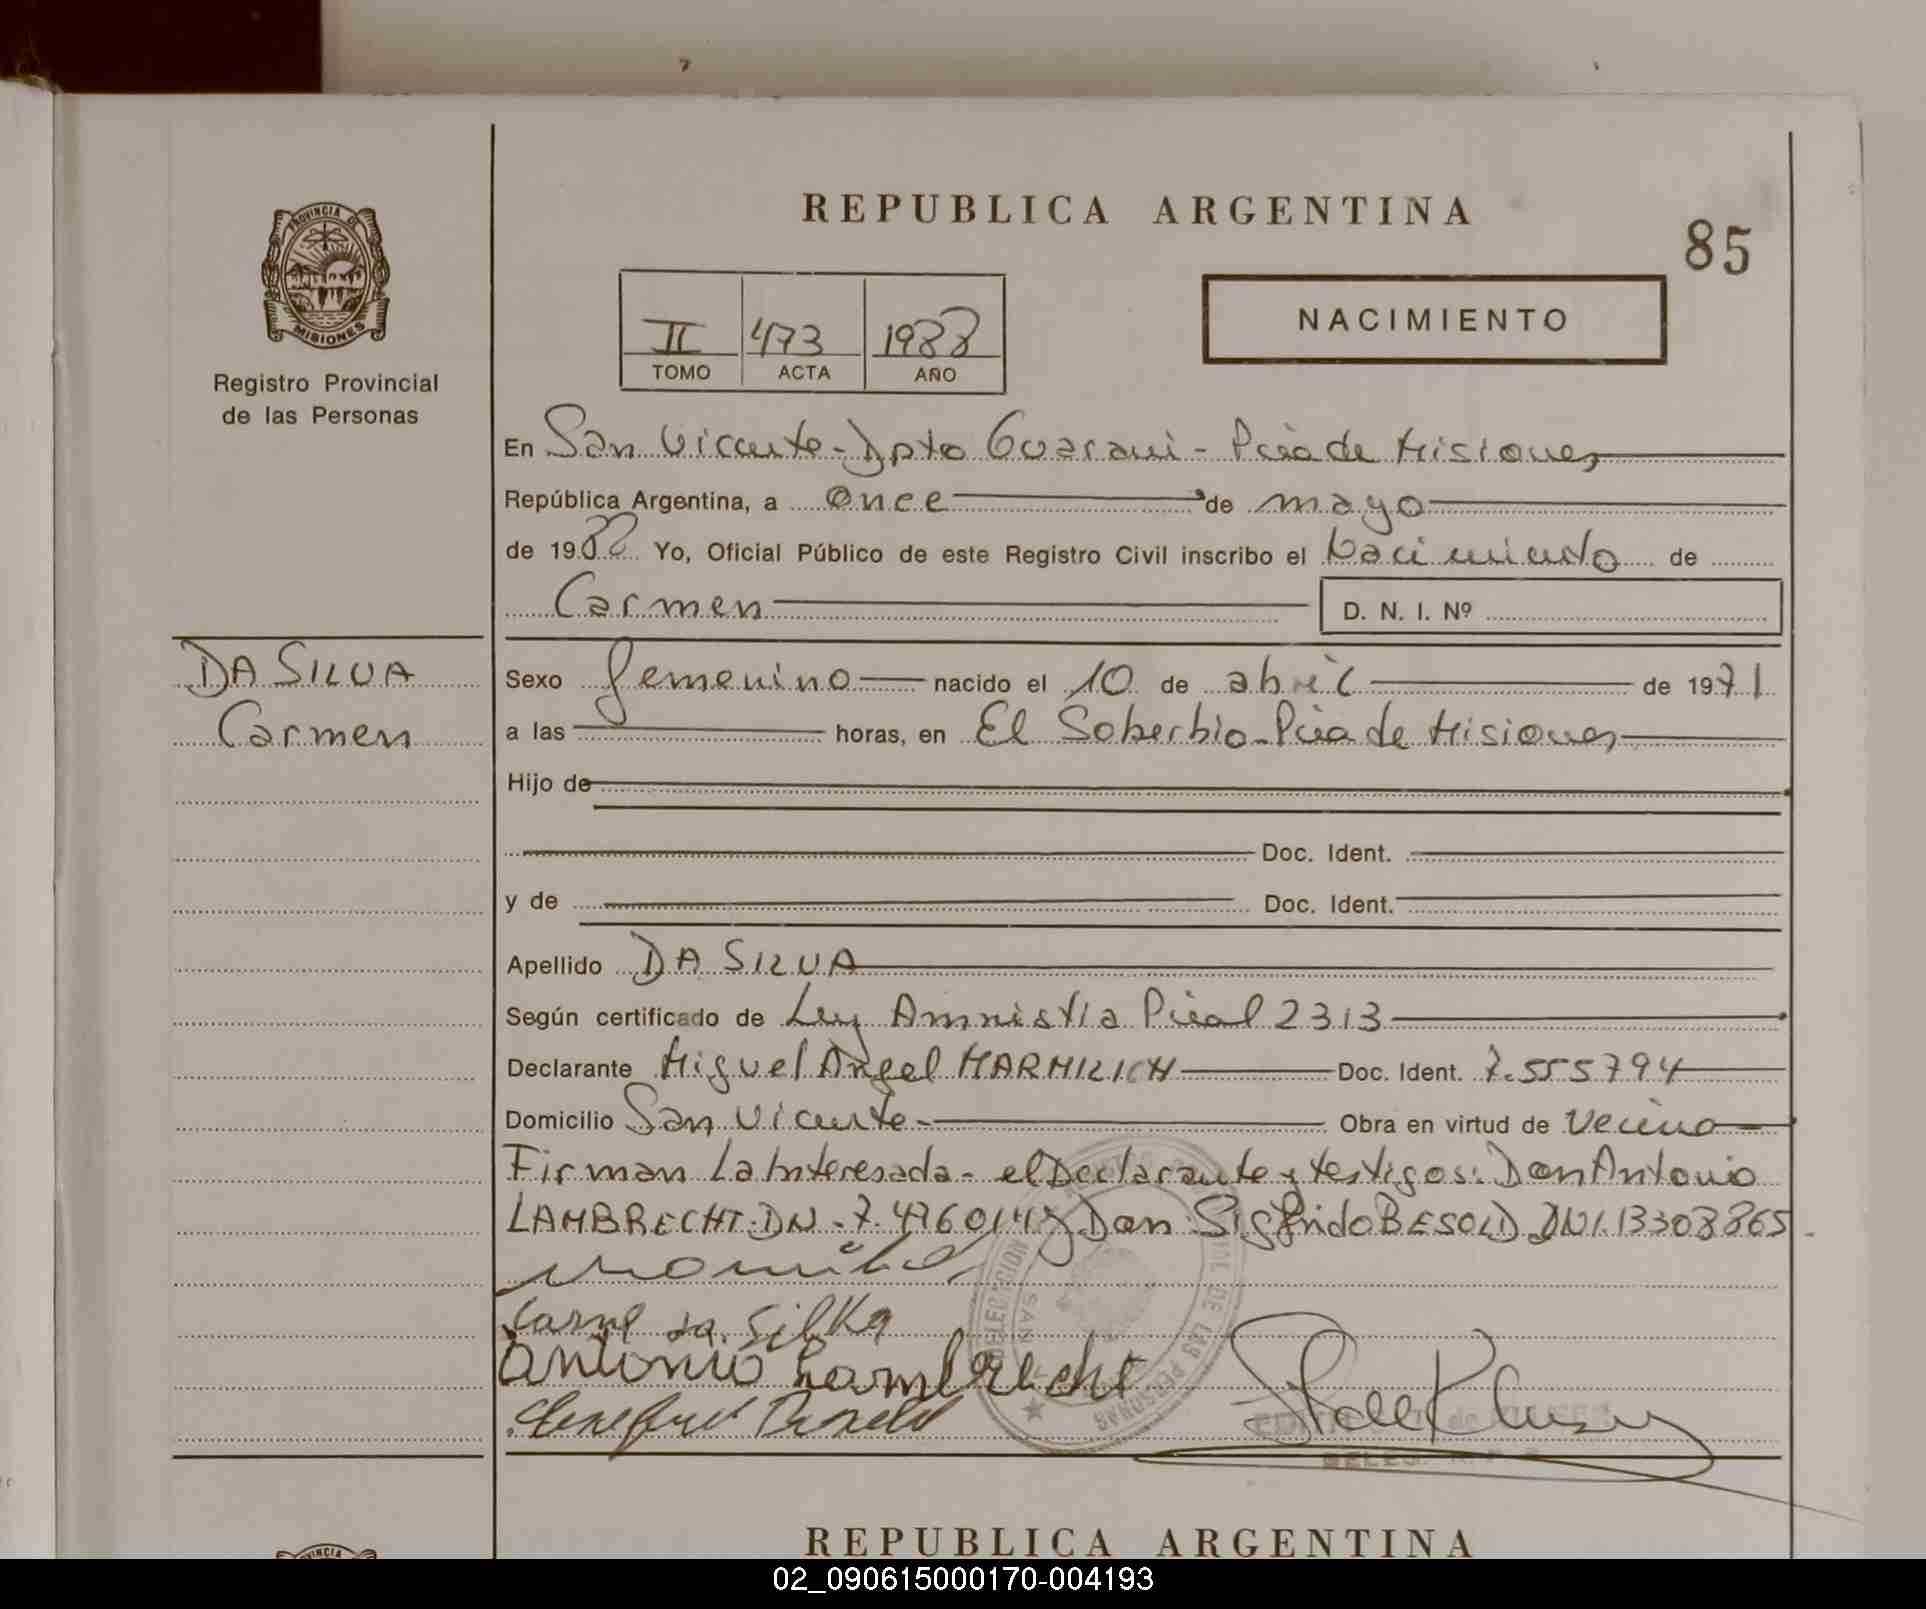 REPUBLICA ARGENTINA
85
PROVINCIA DE
MISIONES
Registro Provincial
de las Personas
II 473 1988
TOMO ACTA AÑO
NACIMIENTO
En San Vicente - Dpto Guarani - Pcia de Misiones
República Argentina, a once de mayo
de 1988 Yo, Oficial Público de este Registro Civil inscribo el Nacimiento de
Carmen D. N. I. Nº
DA SILVA
Carmen
Sexo femenino nacido el 10 de abril de 1971
a las horas, en El Soberbio - Pcia de Misiones
Hijo de
Doc. Ident.
y de Doc. Ident.
Apellido DA SILVA
Según certificado de Ley Amnistia Pcial 2313
Declarante Miguel Angel MARMILICH Doc. Ident. 7.555794
Domicilio San Vicente - Obra en virtud de Vecino
Firman La Interesada - el Declarante y testigos: Don Antonio
LAMBRECHT. DN - 7.4760 y Don Sigfrido BESOLD DNI. 13308865
Antonio Lambrecht
DELEGACION SAN DE LAS PERSONAS
REPUBLICA ARGENTINA
02_090615000170-004193